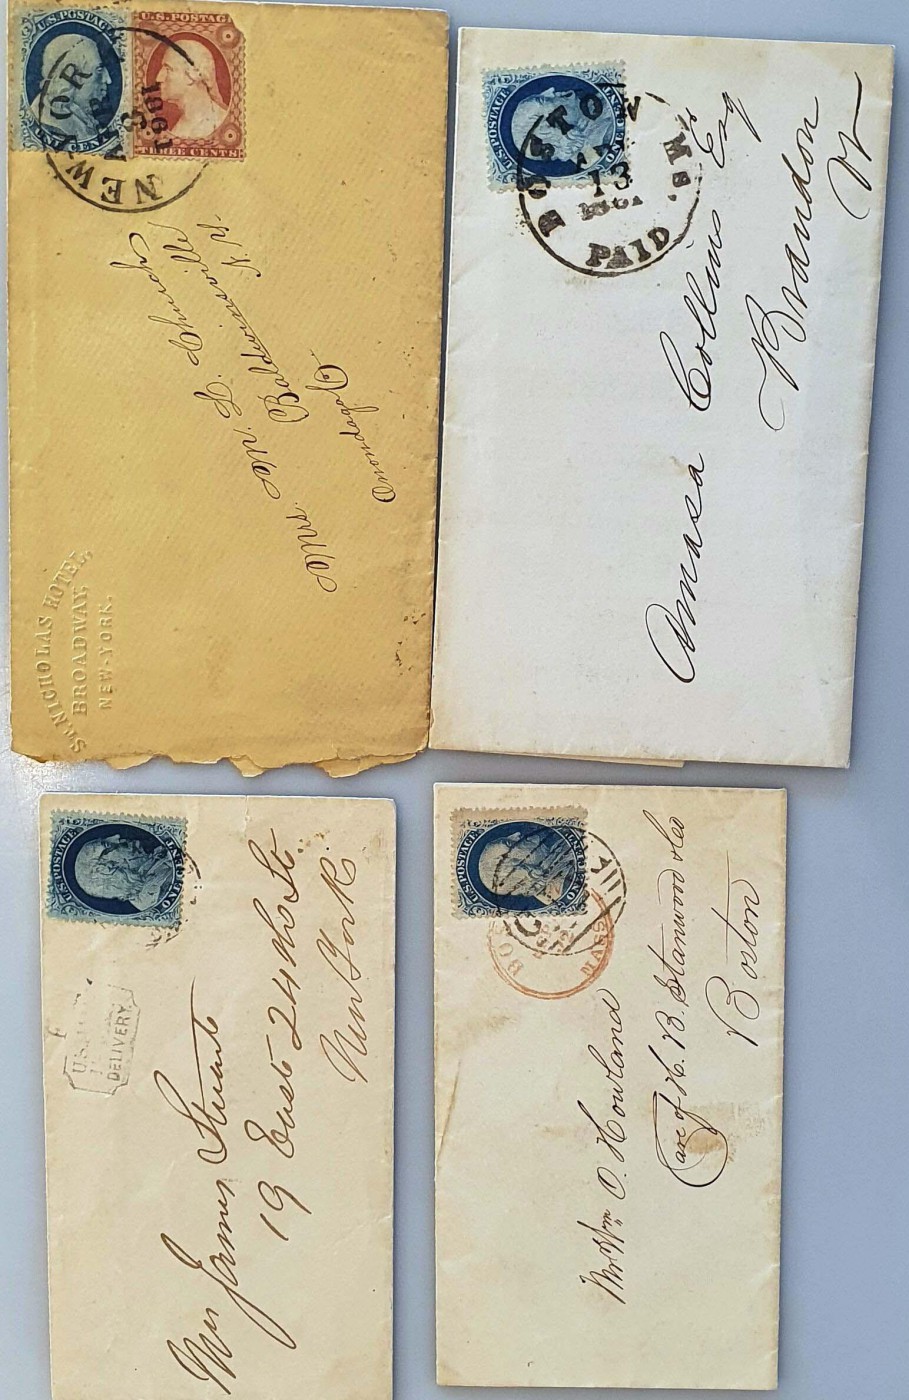 U.S. POSTAGE
U.S. POSTAG
THREE CENTS
NEW-YOR
1861
Mrs. M. L. Church
Baldwinsville
Onondaga Co
N.Y.
ST. NICHOLAS HOTEL,
BROADWAY,
NEW-YORK.
U.S. POSTAGE
ONE CENT
BOSTON
13
1861
PAID
Amasa Collins Esq
Brandon
Vt
U.S. POSTAGE
ONE CENT
U.S.
DELIVERY
Mrs James Stuart
19 East 24th St.
New York
U.S. POSTAGE
ONE CENT
BOS
MASS
Mr Wm O. Howland
Care of H. B. Stanwood & Co
Boston